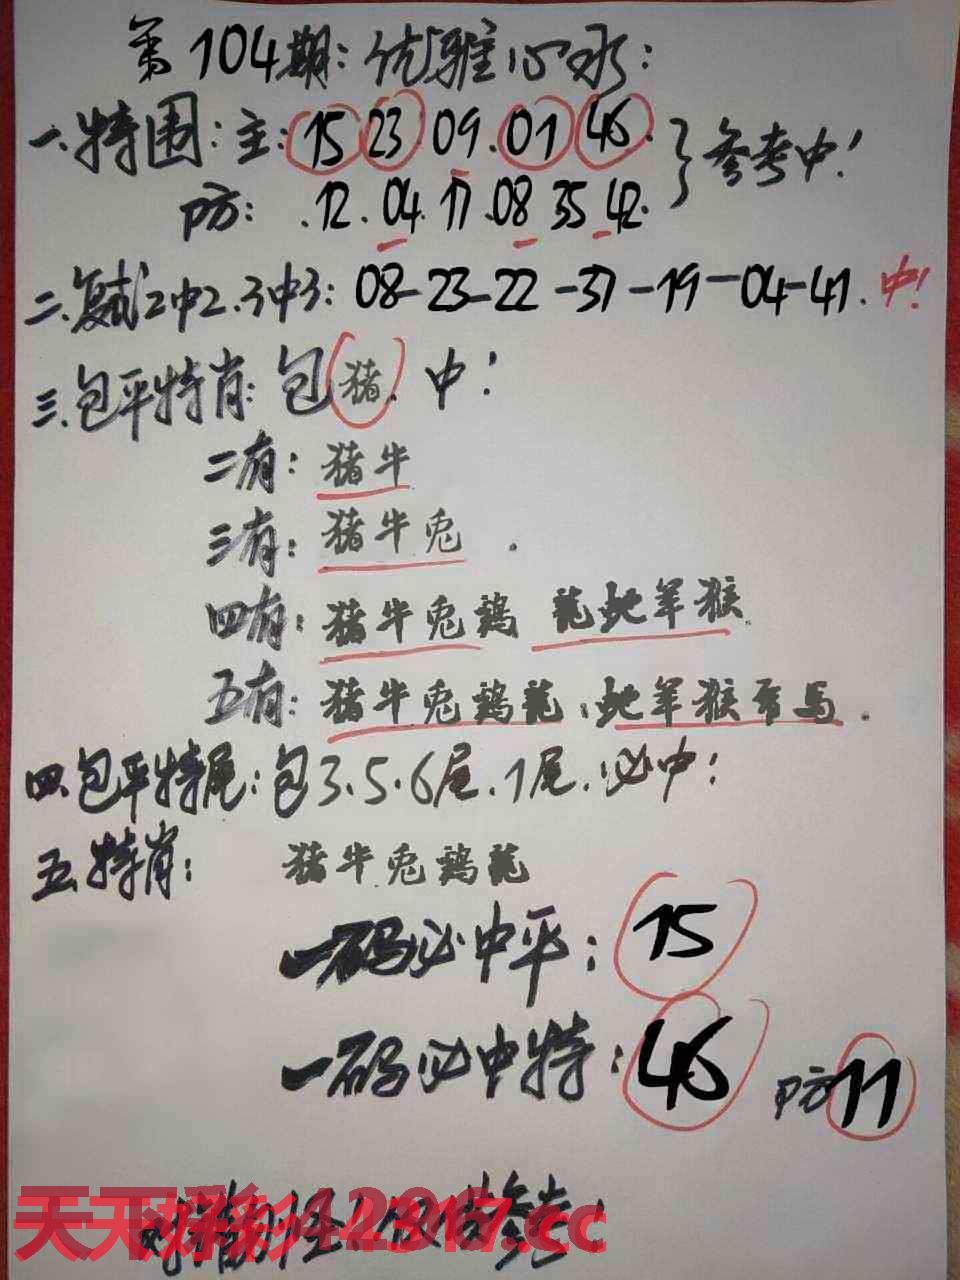 第104期:优雅心水:
一.特围:主:15 23.09.01 46.
参考中!
防:.12.04.17.08 35 42.
二.复试2中2.3中3:08-23-22-37-19-04-41.中!
三.包平特肖:包猪.中!
二有:猪牛
三有:猪牛兔.
四有:猪牛兔鸡 龍蛇羊猴
五有:猪牛兔鸡龍:蛇羊猴 马.
四.包平特尾:包3.5.6尾.1尾.必中:
五.特肖:猪牛兔鸡龍
一码必中平:15
一码必中特:46 防11
天天 彩 .cc